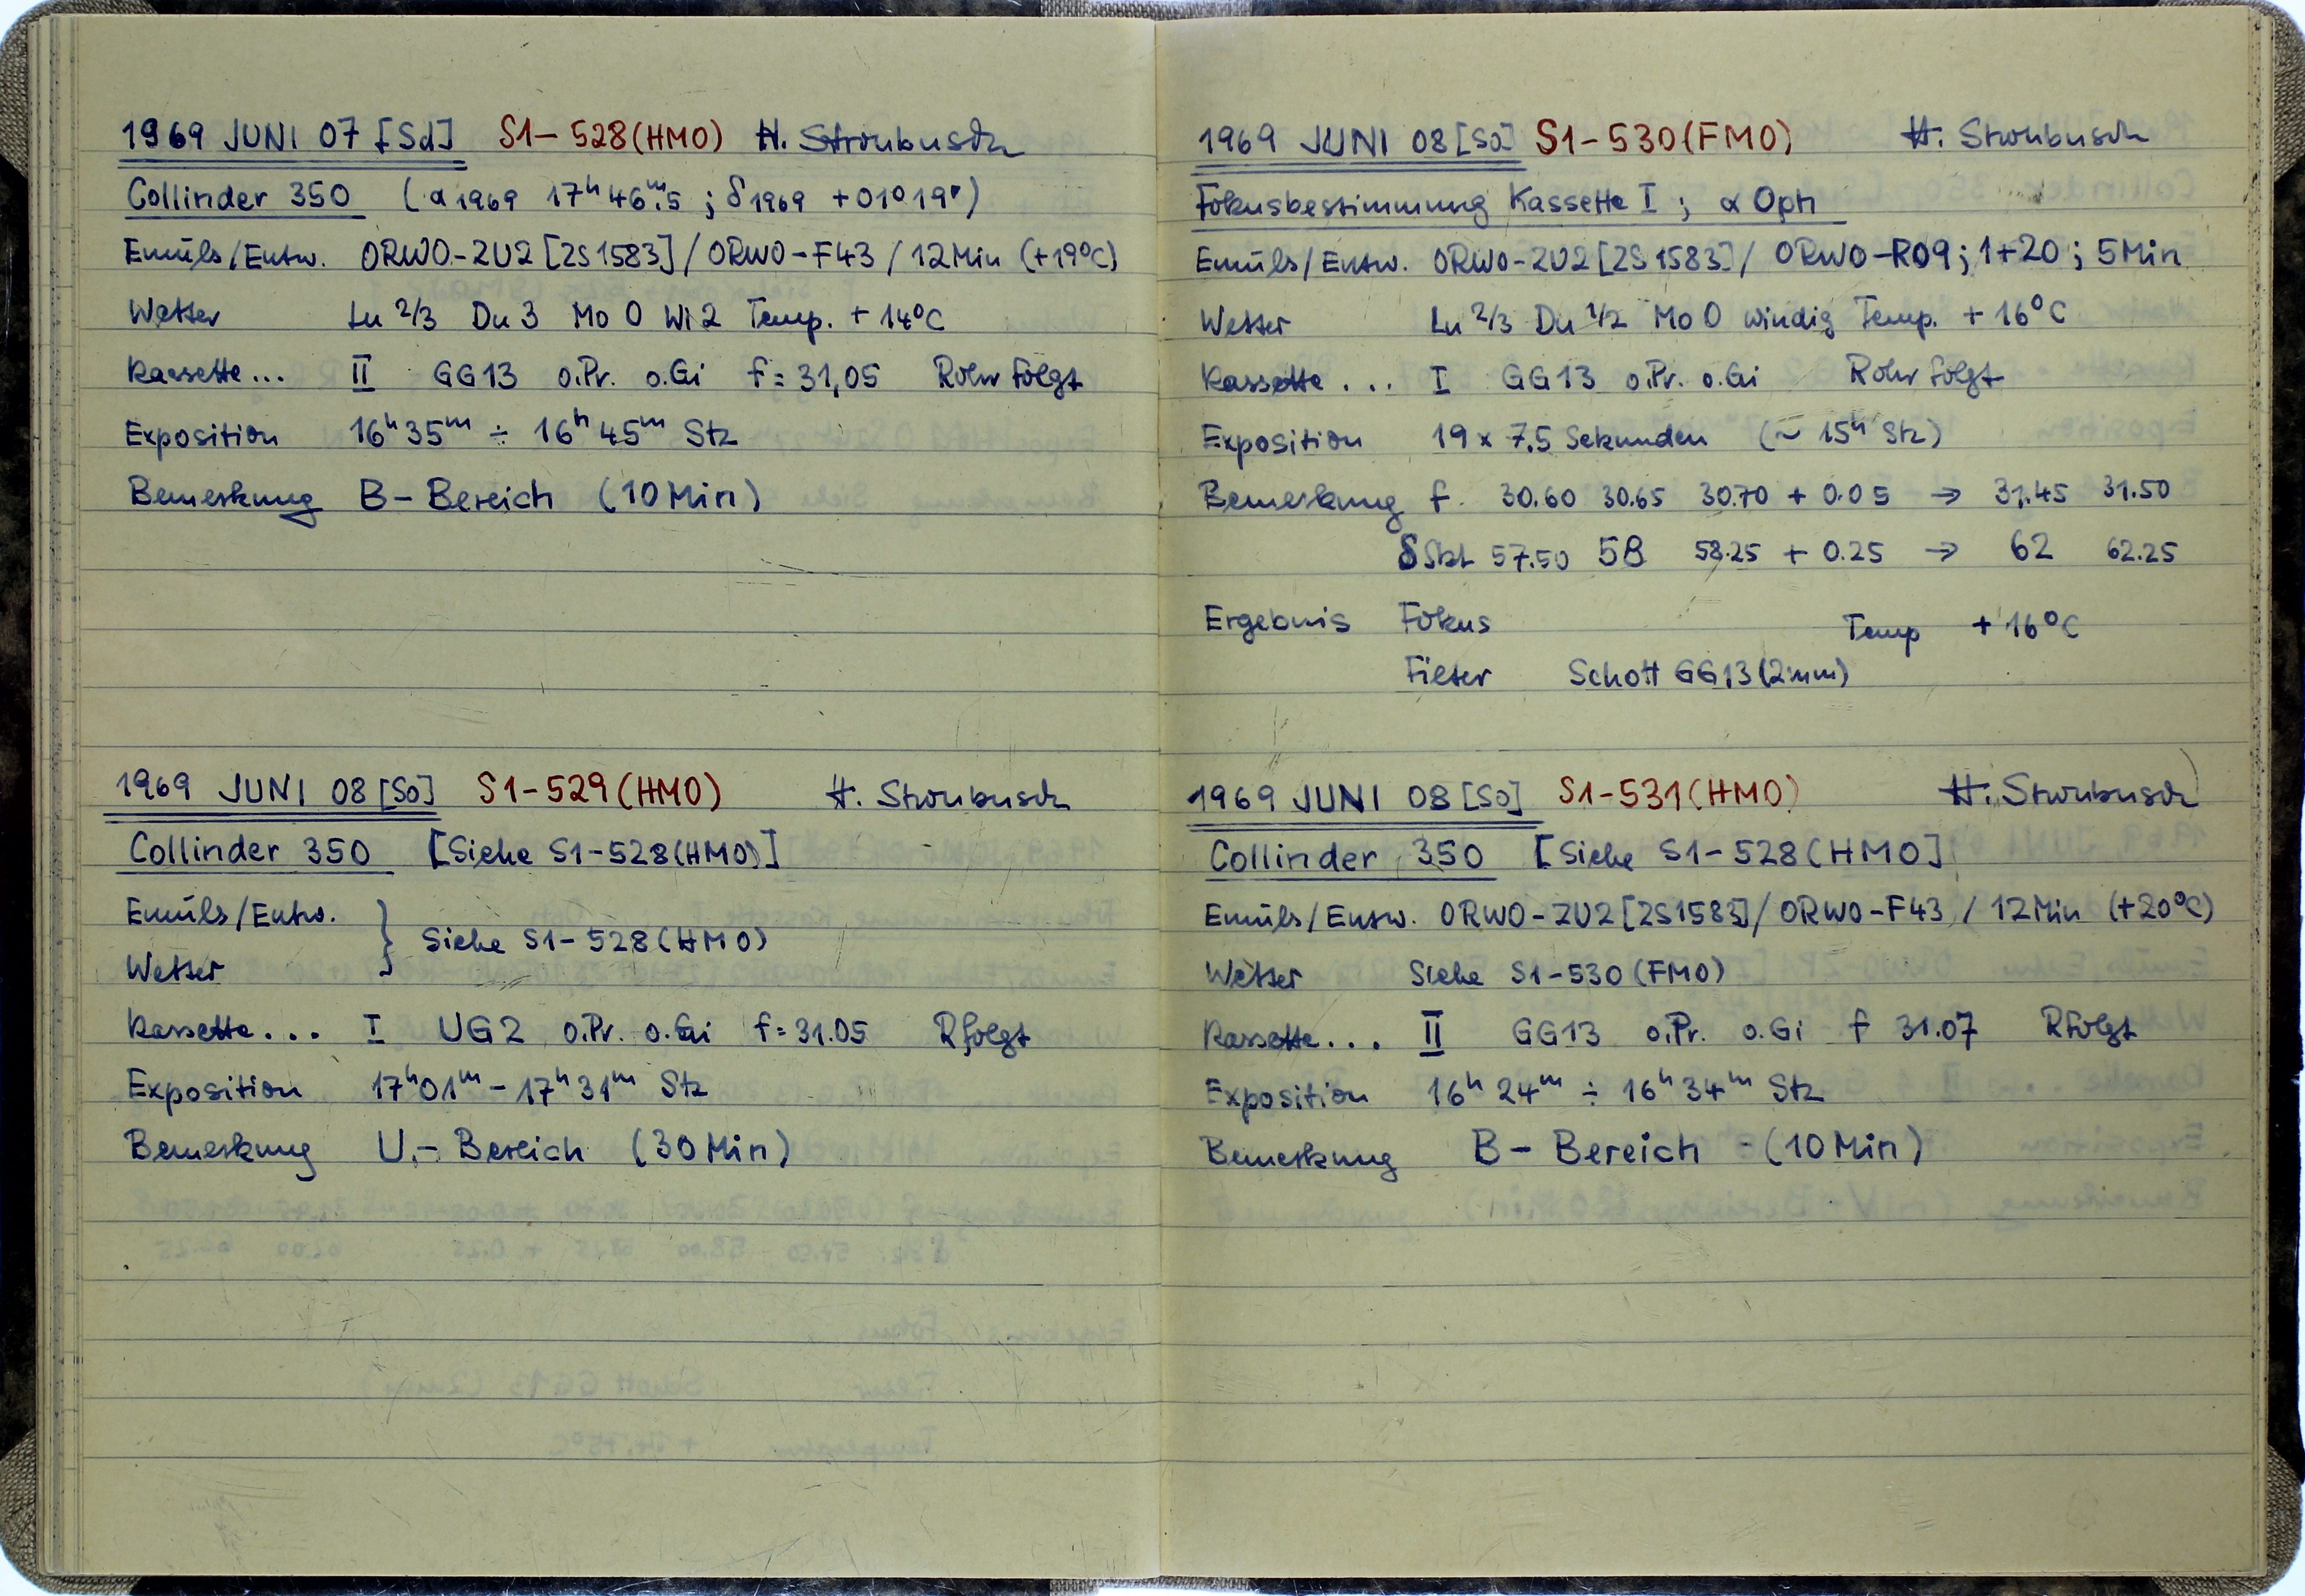 1969 JUNI 07 [Sd] S1-528(HMO) H. Stroubusch
Collinder 350 (α1969 17ʰ46ᵐ.5 ; δ1969 +01°19')
Emuls/Entw. ORWO-ZU2[ZS1583]/ORWO-F43/12Min (+19°C)
Wetter Lu 2/3 Du 3 Mo 0 Wi 2 Temp. +14°C
Kassette... II GG13 o.Pr. o.Gi f=31,05 Rohr folgt
Exposition 16ʰ35ᵐ ÷ 16ʰ45ᵐ Stz
Bemerkung B-Bereich (10Min)
1969 JUNI 08 [So] S1-529(HMO) H. Stroubusch
Collinder 350 [Siehe S1-528(HMO)]
Emuls/Entw. } Siehe S1-528(HMO)
Wetter
Kassette... I UG2 o.Pr. o.Gi f=31.05 Rfolgt
Exposition 17ʰ01ᵐ - 17ʰ31ᵐ Stz
Bemerkung U.-Bereich (30Min)
1969 JUNI 08 [So] S1-530(FMO) H. Stroubusch
Fokusbestimmung Kassette I ; α Oph
Emuls/Entw. ORWO-ZU2[ZS1583]/ORWO-R09; 1+20; 5Min
Wetter Lu 2/3 Du 1/2 Mo 0 windig Temp. +16°C
Kassette... I GG13 o.Pr. o.Gi Rohr folgt
Exposition 19 x 7.5 Sekunden (~15ʰ Stz)
Bemerkung f. 30.60 30.65 30.70 + 0.05 → 31.45 31.50
δSkt 57.50 58 58.25 + 0.25 → 62 62.25
Ergebnis Fokus Temp +16°C
Filter Schott GG13(2mm)
1969 JUNI 08 [So] S1-531(HMO) H. Stroubusch
Collinder 350 [Siehe S1-528(HMO]
Emuls/Entw. ORWO-ZU2[ZS1583]/ORWO-F43/12Min (+20°C)
Wetter Siehe S1-530(FMO)
Kassette... II GG13 o.Pr. o.Gi f 31.07 Rfolgt
Exposition 16ʰ24ᵐ ÷ 16ʰ34ᵐ Stz
Bemerkung B-Bereich -(10Min)